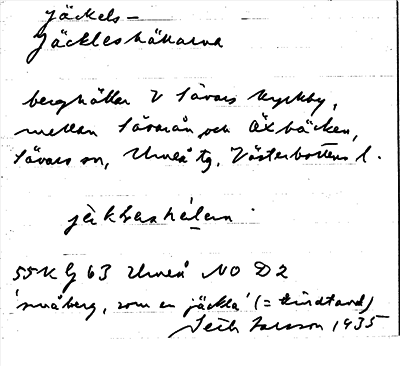 Jäckels-
Jäckleshällarna
berghällar V Sävars kyrkby,
mellan Sävarån och Äxbäcken,
Sävars sn, Umeå tg, Västerbottens l.
55K G 63 Umeå NO D2
'småberg, som en jäckla' (= kindtand)
Seth Larsson 1935